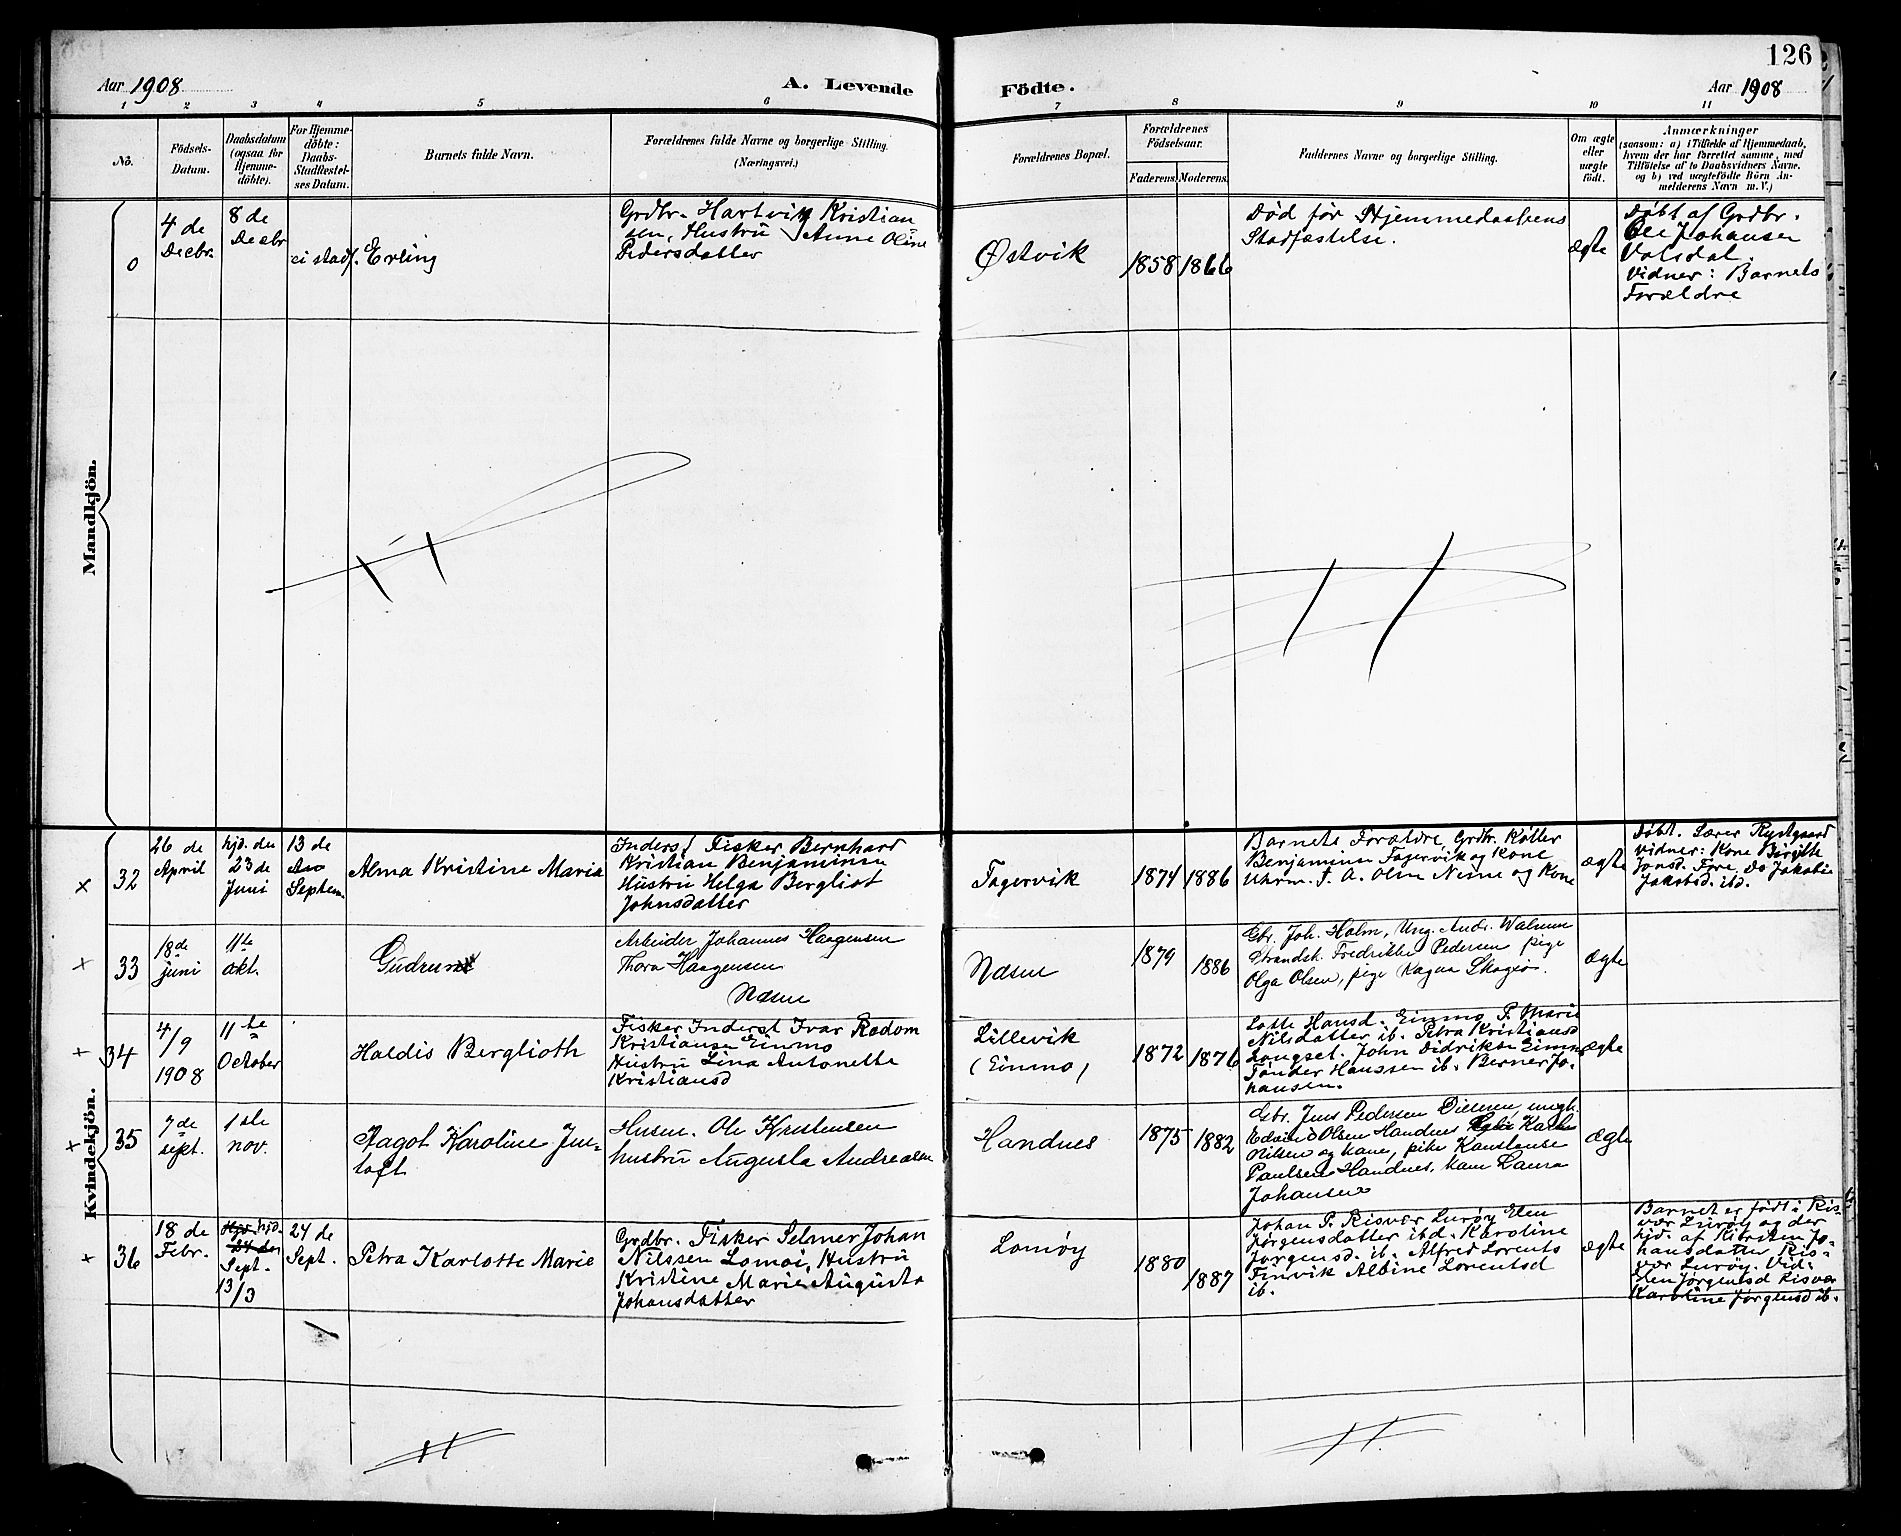 126
Aar 1908
A. Levende
Födte.
Aar 1908
1 2 3 4 5 6 7 8 9 10 11
No.
Födsels-
Datum.
Daabsdatum
(ogsaa for
Hjemme-
döbte).
For Hjemme-
döbte:
Daabs-
Stadfæstel-
ses Datum.
Barnets fulde Navn.
Forældrenes fulde Navne og borgerlige Stilling.
(Næringsvei.)
Forældrenes Bopæl.
Forældrenes
Födselsaar.
Faderens. Moderens.
Faddernes Navne og borgerlige Stilling.
Om ægte
eller
uægte
födt.
Anmærkninger
(saasom: a) i Tilfælde af Hjemmedaab,
hvem der har forrettet samme, med
Tilföielse af to Daabsvidners Navne.
og b) ved uægtefödte Börn An-
melderens Navn m. V.)
Mandkjön.
0
4 de
Decbr.
8 de
Decbr
ei stadf.
Erling
Grdbr. Hartvig Kristian
sen, Hustru Anne Oline
Pedersdatter
Østvik
1858 1866
Død før Hjemmedaabens
Stadfæstelse.
ægte
Døbt af Grdbr.
Ole Johansen
Valsdal.
Vidner: Barnets
Forældre
Kvindekjön.
x 32
26 de
April
hjd. den
23 de
Juni
13 de
Septem.
Alma Kristine Marie
Inderst Fisker Bernhard
Kristian Benjaminsen
Hustru Helga Bergliot
Johnsdatter
Fagervik
1874 1886
Barnets Forældre, Grdbr. Køller
Benjaminsen Fagervik og Kone
Uhrm. F. A. Olsen Nesne og Kone
ægte
Døbt. Lærer Rystgaard
Vidner: Kone Birgitte
Jonsd. Fore, Do Jakobie
Jakobsd. ibd.
x 33
18 de
juni
11te
okt.
Gudrun
Arbeider Johannes Haagensen
Thora Haagensen
Næsne
Næsne
1879 1886
Gbr. Joh. Holm, Ung. Andr. Walnum
Strandsk. Fredrikke Pedersen pige
Olga Olsen, pige Ragna Skagen.
ægte
x 34
4/9
1908
11te
October
Haldis Berglioth
Fisker Inderst Ivar Rodom
Kristiansen Einmo
Hustru Lina Antonette
Kristiansd
Lillevik
(Einmo)
1872 1876
Lotte Hansd. Einmo, P. Marie
Nilsdatter ib. Petra Kristiansd
Langset. John Didriksen Einmo
Tønder Hanssen ib. Berner Jo-
hansen.
ægte
x 35
7de
sept.
1ste
nov.
Aagot Karoline Jen-
toft
Husm. Ole Kristensen
hustru Augusta Andreassen
Handnes
1875 1882
Gbr. Jens Pedersen Dillesen, ungk.
Edvin Olsen Handnes Karl
Nilsen og kone, pike Konstanse
Paulsen Handnes. kone Laura
Johansen
ægte
x 36
18 de
Febr.
hjd.
24 den
Sept.
13/3
24 de
Sept.
Petra Karlotte Marie
Grdbr. Fisker Selmer Johan
Nilssen Lomøi, Hustru
Kristine Marie Augusta
Johansdatter
Lomøy
1880 1887
Johan P. Risvær Lurøy Elen
Jørgensdatter ibd. Karoline
Jørgensd. ib. Alfred Lorents
Finvik Albine Lorentsd
ib.
ægte
Barnet er født i Ris-
vær Lurøy og der
hjd. af Kirsten Jo-
hansdatter Ris-
vær Lurøy. Vid-
Elen Jørgensd Risvær
Karoline Jørgensd ib.